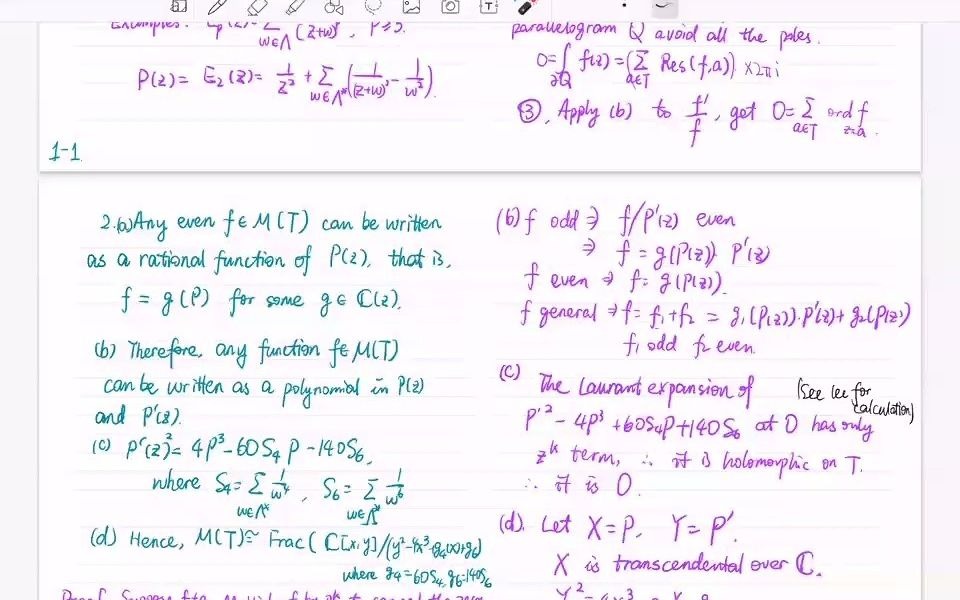 Examples: E_p(z) = Σ_{w∈Λ} 1/(z+w)^p, p≥3.
P(z) = E_2(z) = 1/z² + Σ_{w∈Λ*} (1/(z+w)² - 1/w²).
1-1.
parallelogram Q avoid all the poles.
0 = ∫_{∂Q} f(z) = (Σ_{a∈T} Res(f,a)) ×2πi
③. Apply (b) to f'/f, get 0 = Σ_{a∈T} ord_{z=a} f.
2.(a) Any even f∈M(T) can be written
as a rational function of P(z), that is,
f = g(P) for some g∈ℂ(z).
(b) Therefore, any function f∈M(T)
can be written as a polynomial in P(z)
and P'(z).
(c) P'(z)² = 4P³-60S₄P-140S₆,
where S₄ = Σ_{w∈Λ*} 1/w⁴, S₆ = Σ_{w∈Λ*} 1/w⁶
(d) Hence, M(T) ≅ Frac(ℂ[x,y]/(y²-4x³-g₄(x)+g₆)
where g₄=60S₄, g₆=140S₆
(b) f odd ⇒ f/P'(z) even
⇒ f = g(P(z)) P'(z)
f even ⇒ f = g(P(z)).
f general ⇒ f = f₁+f₂ = g₁(P(z))·P'(z)+g₂(P(z))
f₁ odd f₂ even.
(c) The Laurant expansion of
(see lec for
calculation)
P'²-4P³+60S₄P+140S₆ at 0 has only
z^k term, ∴ it is holomorphic on T.
∴ it is 0.
(d). Let X=P, Y=P'.
X is transcendental over ℂ.